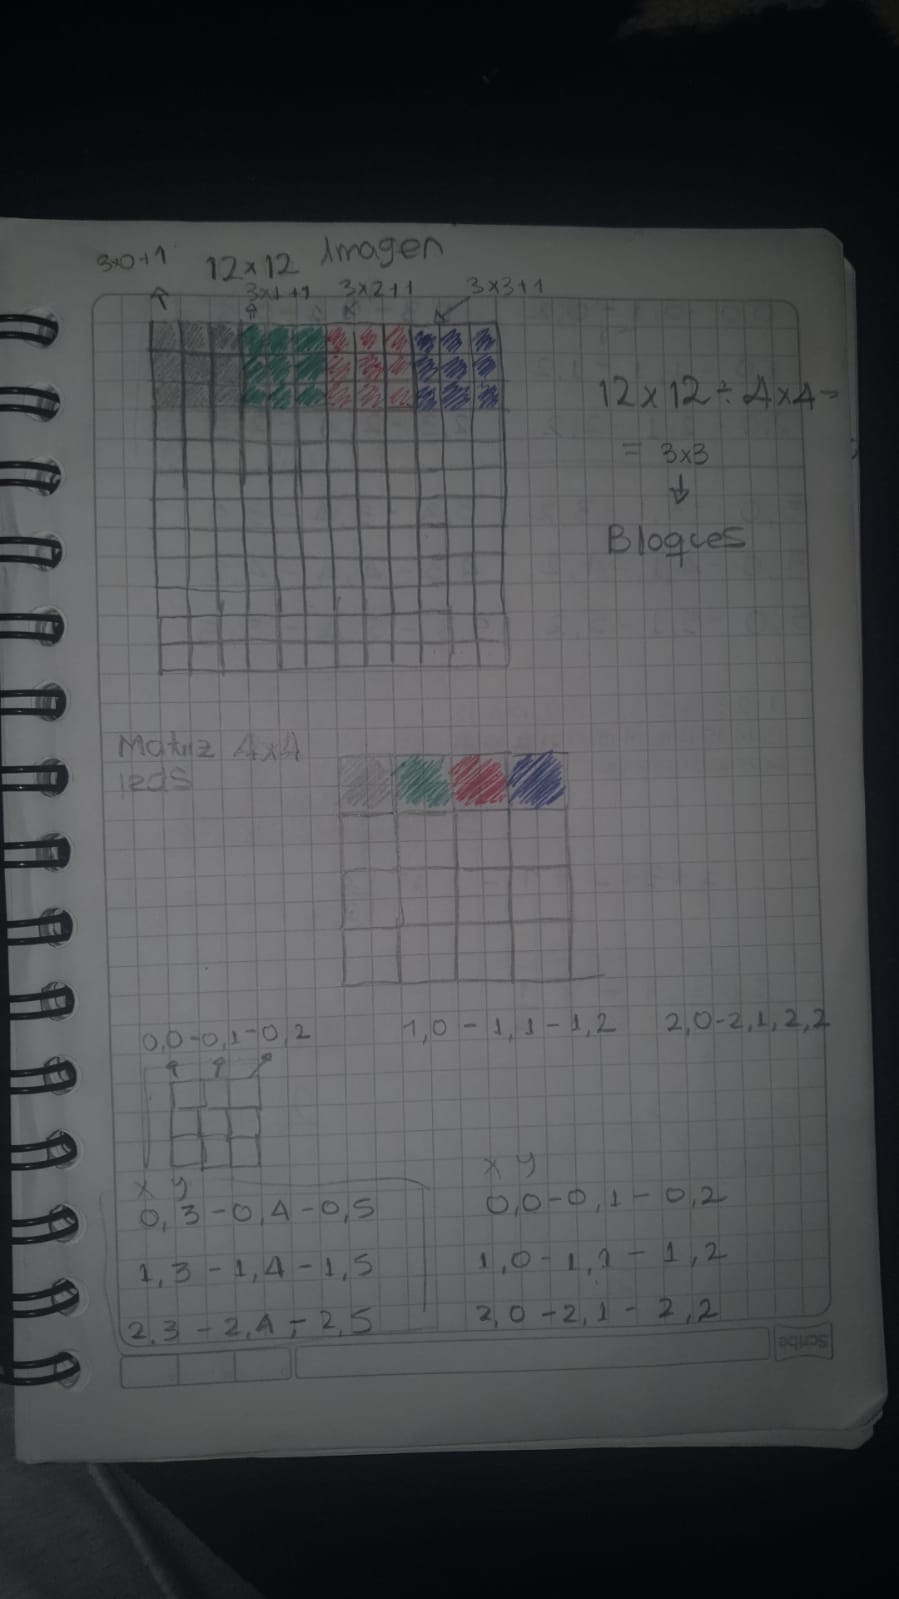 3x0+1
12x12 Imagen
3x1+1 3x2+1 3x3+1
12x12 ÷ 4x4 =
= 3x3
Bloques
Matriz 4x4
leds
0,0-0,1-0,2 1,0-1,1-1,2 2,0-2,1,2,2
x y
0,3-0,4-0,5
1,3-1,4-1,5
2,3-2,4-2,5
x y
0,0-0,1-0,2
1,0-1,1-1,2
2,0-2,1-2,2
Scribe